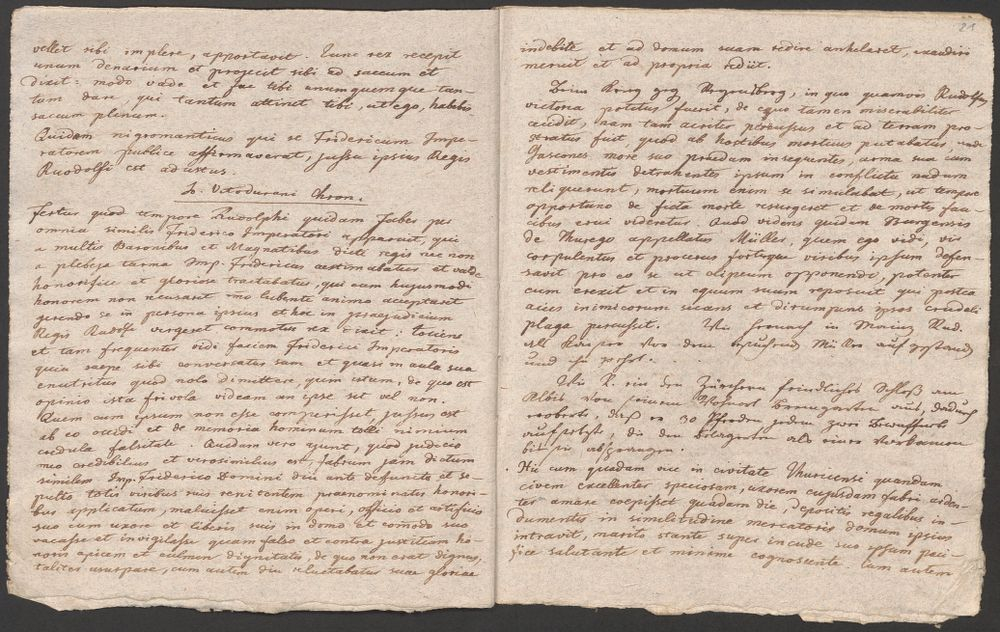 vellet sibi implere, apportavit. Tunc rex recepit
unum denarium et projecit sibi ad saccum et
dixit: modo vade et fac tibi unumquemque tan-
tum dare, qui tantum attinet tibi, ut ego, habebis
saccum plenum.
Quidam nigromanticus qui se Fridericum Impe-
ratorem publice affirmaverat, jussu ipsius Regis
Ruodolfi est adustus.
Jo. Vitodurani Chron.
Fertur quod tempore Rudolphi quidam Faber per
omnia similis Friderico Imperatori apparuit, qui
a multis Baronibus et Magnatibus dicti regis nec non
a plebeja turma Imp. Fridericus aestimabatur et valde
honorifice et gloriose tractabatur, qui cum hujusmodi
honorem non recusaret imo libente animo acceptaret
gerendo se in persona ipsius et hoc in praejudicium
Regis Rudolfi vergeret commotus rex dixit: tociens
et tam frequenter vidi faciem Friderici Imperatoris
quia saepe sibi conversatus sum et quasi in aula sua
enutritus quod nolo dimittere, quin istum, de quo est
opinio ista frivola videam an ipse sit vel non.
Quem cum ipsum non esse comperisset jussus est
ab eo occidi et de memoria hominum tolli nimium
credula falsitate. Quidam vero ajunt, quod judicio
meo credibilius et verosimilius est fabrum jam dictum
similem Imp. Friderico Domini diu ante defuncto et se-
pulto totis viribus suis renitentem praenominatis honori-
bus applicatum, maluisset enim operi, officio et artificio
suo cum uxore et liberis suis in domo et commodo suo
vacasse et invigilasse quam false et contra justitiam ho-
noris apicem et culmen dignitatis, de quo non erat dignus,
taliter usurpare, cum autem diu reluctabatur suae gloriae
21
indebite et ad domum suam redire anhelaret, exaudiri
meruit et ad propria rediit.
in quo quamvis Rudolfus
victoria potitus fuerit, de equo tamen miserabiliter
cecidit, nam tam acriter percussus et ad terram pro-
stratus fuit, quod ab hostibus mortuus putabatur, unde
Gascones more suo praedam insequentes, arma sua cum
vestimentis detrahentes ipsum in conflictu nudum
reliquerunt, mortuum enim se simulabat, ut tempore
opportuno de ficta morte resurgeret et de mortis fau-
cibus erui videretur. Quod videns quidam Burgensis
de Thurego appellatus Müller, quem ego vidi, vir
corpulentus et procerus fortisque viribus ipsum defen-
savit pro eo se ut clipeum opponendo, potenter
eum erexit et in equum suum reposuit qui postea
acies inimicorum secans et dirumpens ipsos crudeli
plaga percussit. Wie hernach in Mainz Rud.
als Kaiser vor dem Müller aufgestanden
und
Wie R. ein den Zürchern feindliches Schloß am
Albis von seinem Baumgarten aus, dadurch
eroberte, daß er 30 Pferden jedem zwei Bewaffnete
aufsetzte, die den Belagerten als eines
Hic cum quadam vice in civitate Thuricensi quandam
civem excellenter speciosam, uxorem cujusdam fabri arden-
ter amare coepisset quadam die, depositis regalibus in-
dumentis in similitudine mercatoris domum ipsius
intravit, marito stante super incude suo ipsum paci-
fice salutante et minime cognoscente. Cum autem